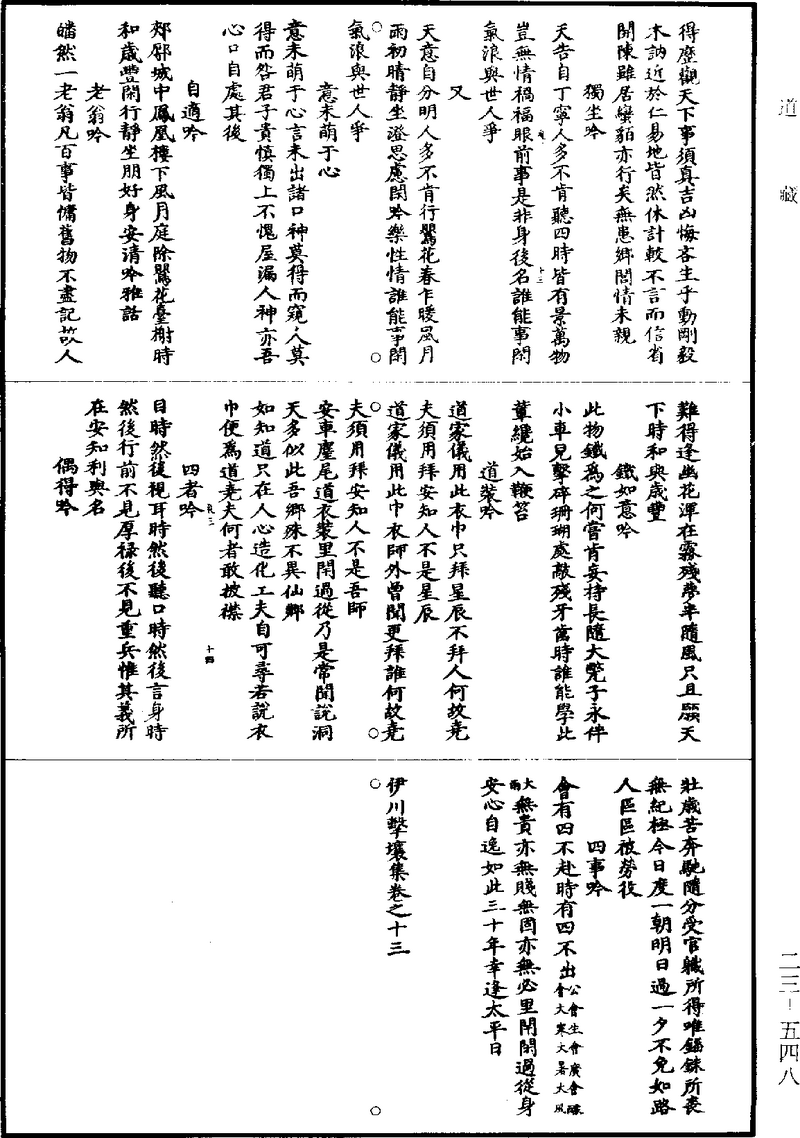 道藏
得塵觀天下事須真吉凶悔吝生乎動剛毅
木訥近於仁易地皆然休計較不言而信省
開陳雖居蠻貊亦行矣無患鄉閭情未親
獨坐吟
天告自丁寧人多不肯聽四時皆有景萬物
豈無情禍福眼前事是非身後名誰能事閑
氣浪與世人爭
又
天意自分明人多不肯行鸎花春乍暖風月
雨初晴靜坐澄思慮閑吟樂性情誰能事閑
氣浪與世人爭
意未萌于心
意未萌于心言未出諸口神莫得而窺人莫
得而咎君子貴慎獨上不愧屋漏人神亦吾
心口自處其後
自適吟
郟鄏城中鳳凰樓下風月庭除鸎花臺榭時
和歲豐閑行靜坐朋好身安清吟雅話
老翁吟
皤然一老翁凡百事皆慵舊物不盡記故人
難得逢幽花渾在霧殘夢半隨風只且願天
下時和與歲豐
鐵如意吟
此物鐵為之何嘗肯妄持長隨大斃子永伴
小車兒擊碎珊瑚處敲殘牙齒時誰能學此
輩纔始入鞭笞
道裝吟
道家儀用此衣巾只拜星辰不拜人何故堯
夫須用拜安知人不是星辰
道家儀用此巾衣師外曾聞更拜誰何故堯
夫須用拜安知人不是吾師
安車塵尾道衣裝里閈過從乃是常聞說洞
天多似此吾鄉殊不異仙鄉
如知道只在人心造化工夫自可尋若說衣
巾便為道堯夫何者敢披襟
四者吟
目時然後視耳時然後聽口時然後言身時
然後行前不見厚祿後不見重兵惟其義所
在安知利與名
偶得吟
壯歲苦奔馳隨分受官職所得唯錙銖所喪
無紀極今日度一朝明日過一夕不免如路
人區區被勞役
四事吟
會有四不赴時有四不出公會生會廣會醵會大寒大暑大風
大雨無貴亦無賤無固亦無必里閈閑過從身
安心自逸如此三十年幸逢太平日
伊川擊壤集卷之十三
十三
十四
二三－五四八